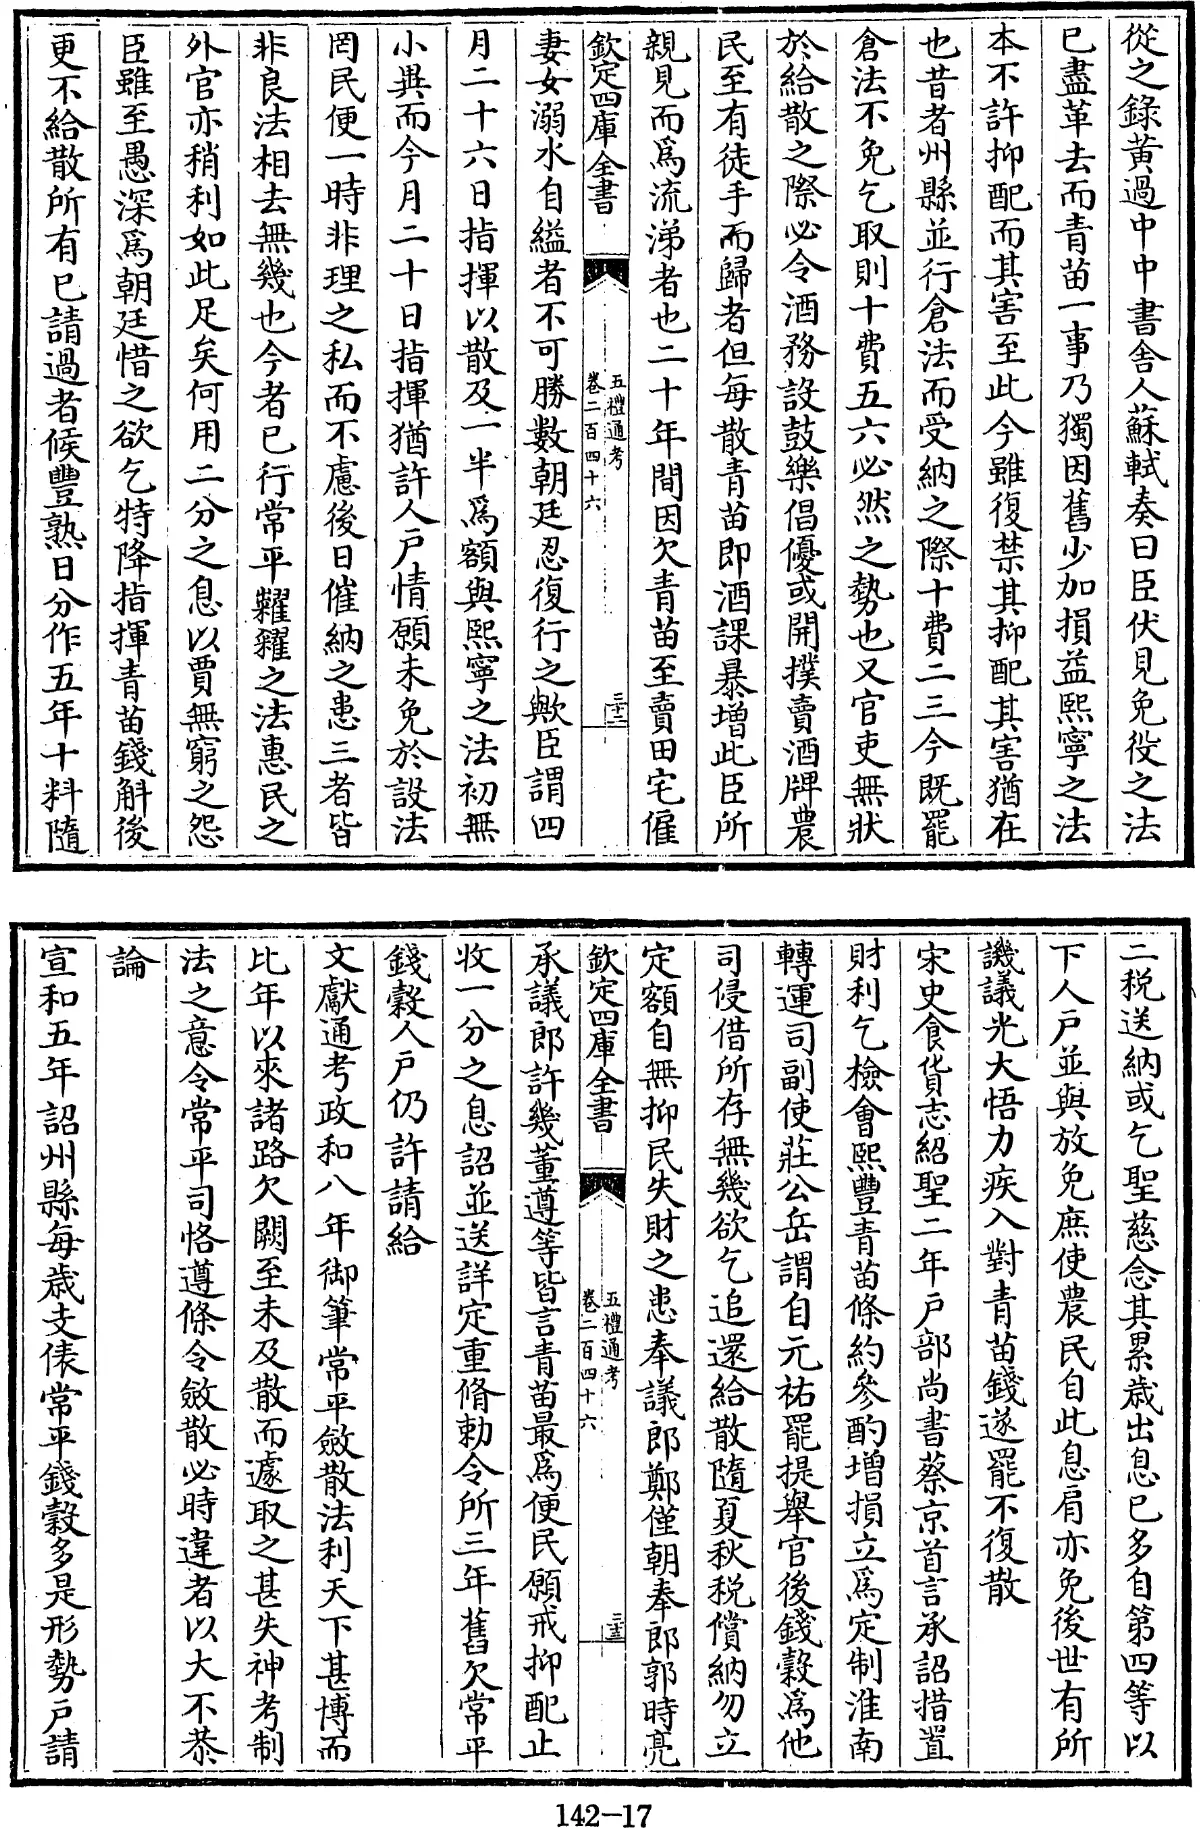 從之錄黃過中中書舍人蘇軾奏曰臣伏見免役之法
已盡革去而青苗一事乃獨因舊少加損益熙寧之法
本不許抑配而其害至此今雖復禁其抑配其害猶在
也昔者州縣並行倉法而受納之際十費二三今既罷
倉法不免乞取則十費五六必然之勢也又官吏無狀
於給散之際必令酒務設鼓樂倡優或開撲賣酒牌農
民至有徒手而歸者但每散青苗即酒課暴增此臣所
親見而為流涕者也二十年間因欠青苗至賣田宅僱
欽定四庫全書
五禮通考
卷二百四十六
三十二
妻女溺水自縊者不可勝數朝廷忍復行之歟臣謂四
月二十六日指揮以散及一半為額與熙寧之法初無
小異而今月二十日指揮猶許人户情願未免於設法
罔民便一時非理之私而不慮後日催納之患三者皆
非良法相去無幾也今者已行常平糶糴之法惠民之
外官亦稍利如此足矣何用二分之息以賈無窮之怨
臣雖至愚深為朝廷惜之欲乞特降指揮青苗錢斛後
更不給散所有已請過者候豐熟日分作五年十料隨
二稅送納或乞聖慈念其累歲出息已多自第四等以
下人户並與放免庶使農民自此息肩亦免後世有所
譏議光大悟力疾入對青苗錢遂罷不復散
宋史食貨志紹聖二年户部尚書蔡京首言承詔措置
財利乞檢會熙豐青苗條約參酌增損立為定制淮南
轉運司副使莊公岳謂自元祐罷提舉官後錢穀為他
司侵借所存無幾欲乞追還給散隨夏秋稅償納勿立
定額自無抑民失財之患奉議郎鄭僅朝奉郎郭時亮
欽定四庫全書
五禮通考
卷二百四十六
三十三
承議郎許幾董遵等皆言青苗最為便民願戒抑配止
收一分之息詔並送詳定重脩勅令所三年舊欠常平
錢穀人户仍許請給
文獻通考政和八年御筆常平斂散法利天下甚博而
比年以來諸路欠闕至未及散而遽取之甚失神考制
法之意令常平司恪遵條令斂散必時違者以大不恭
論
宣和五年詔州縣每歲支俵常平錢穀多是形勢户請
142-17